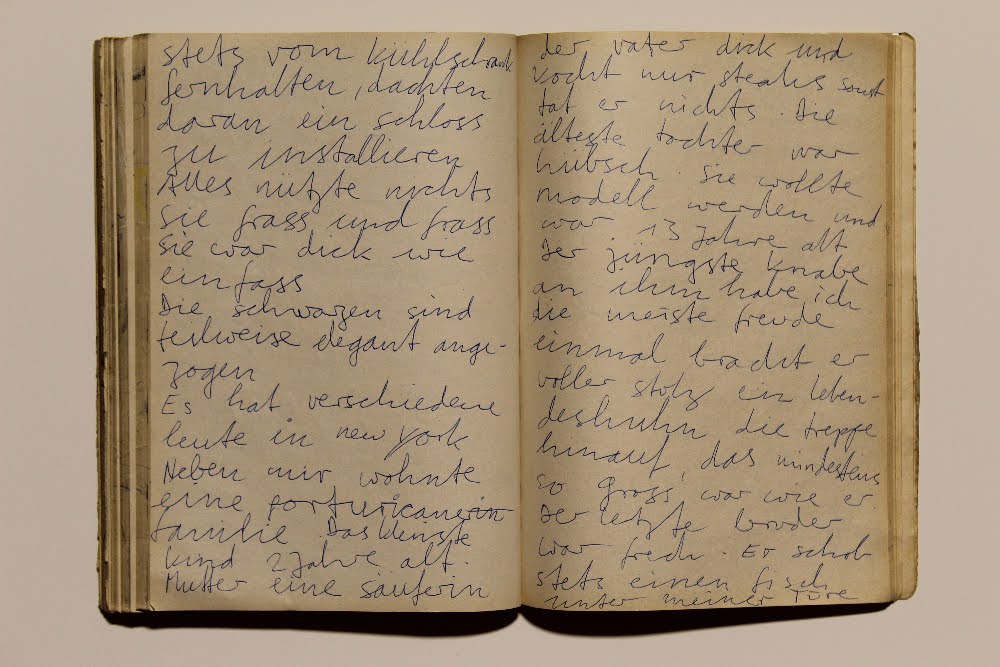 stets vom kühlschrank
fernhalten, dachten
daran ein schloss
zu installieren
Alles nützte nichts
sie frass und frass
sie war dick wie
ein fass
Die schwarzen sind
teilweise elegant ange-
zogen
Es hat verschiedene
leute in new york
Neben mir wohnte
eine porturicanerin
familie. Das kleinste
kind 2 Jahre alt.
Mutter eine säuferin
der vater dick und
kocht nur steaks sonst
tat er nichts. Die
älteste tochter war
hübsch. Sie wollte
modell werden und
war 13 Jahre alt
Der jüngste knabe
an ihm habe ich
die meiste freude
einmal bracht er
voller stolz ein leben-
deshuhn die treppe
hinauf, das mindestens
so gross war wie er.
Der letzte bruder
war frech. Er schob
stets einen fisch
unter meiner Türe